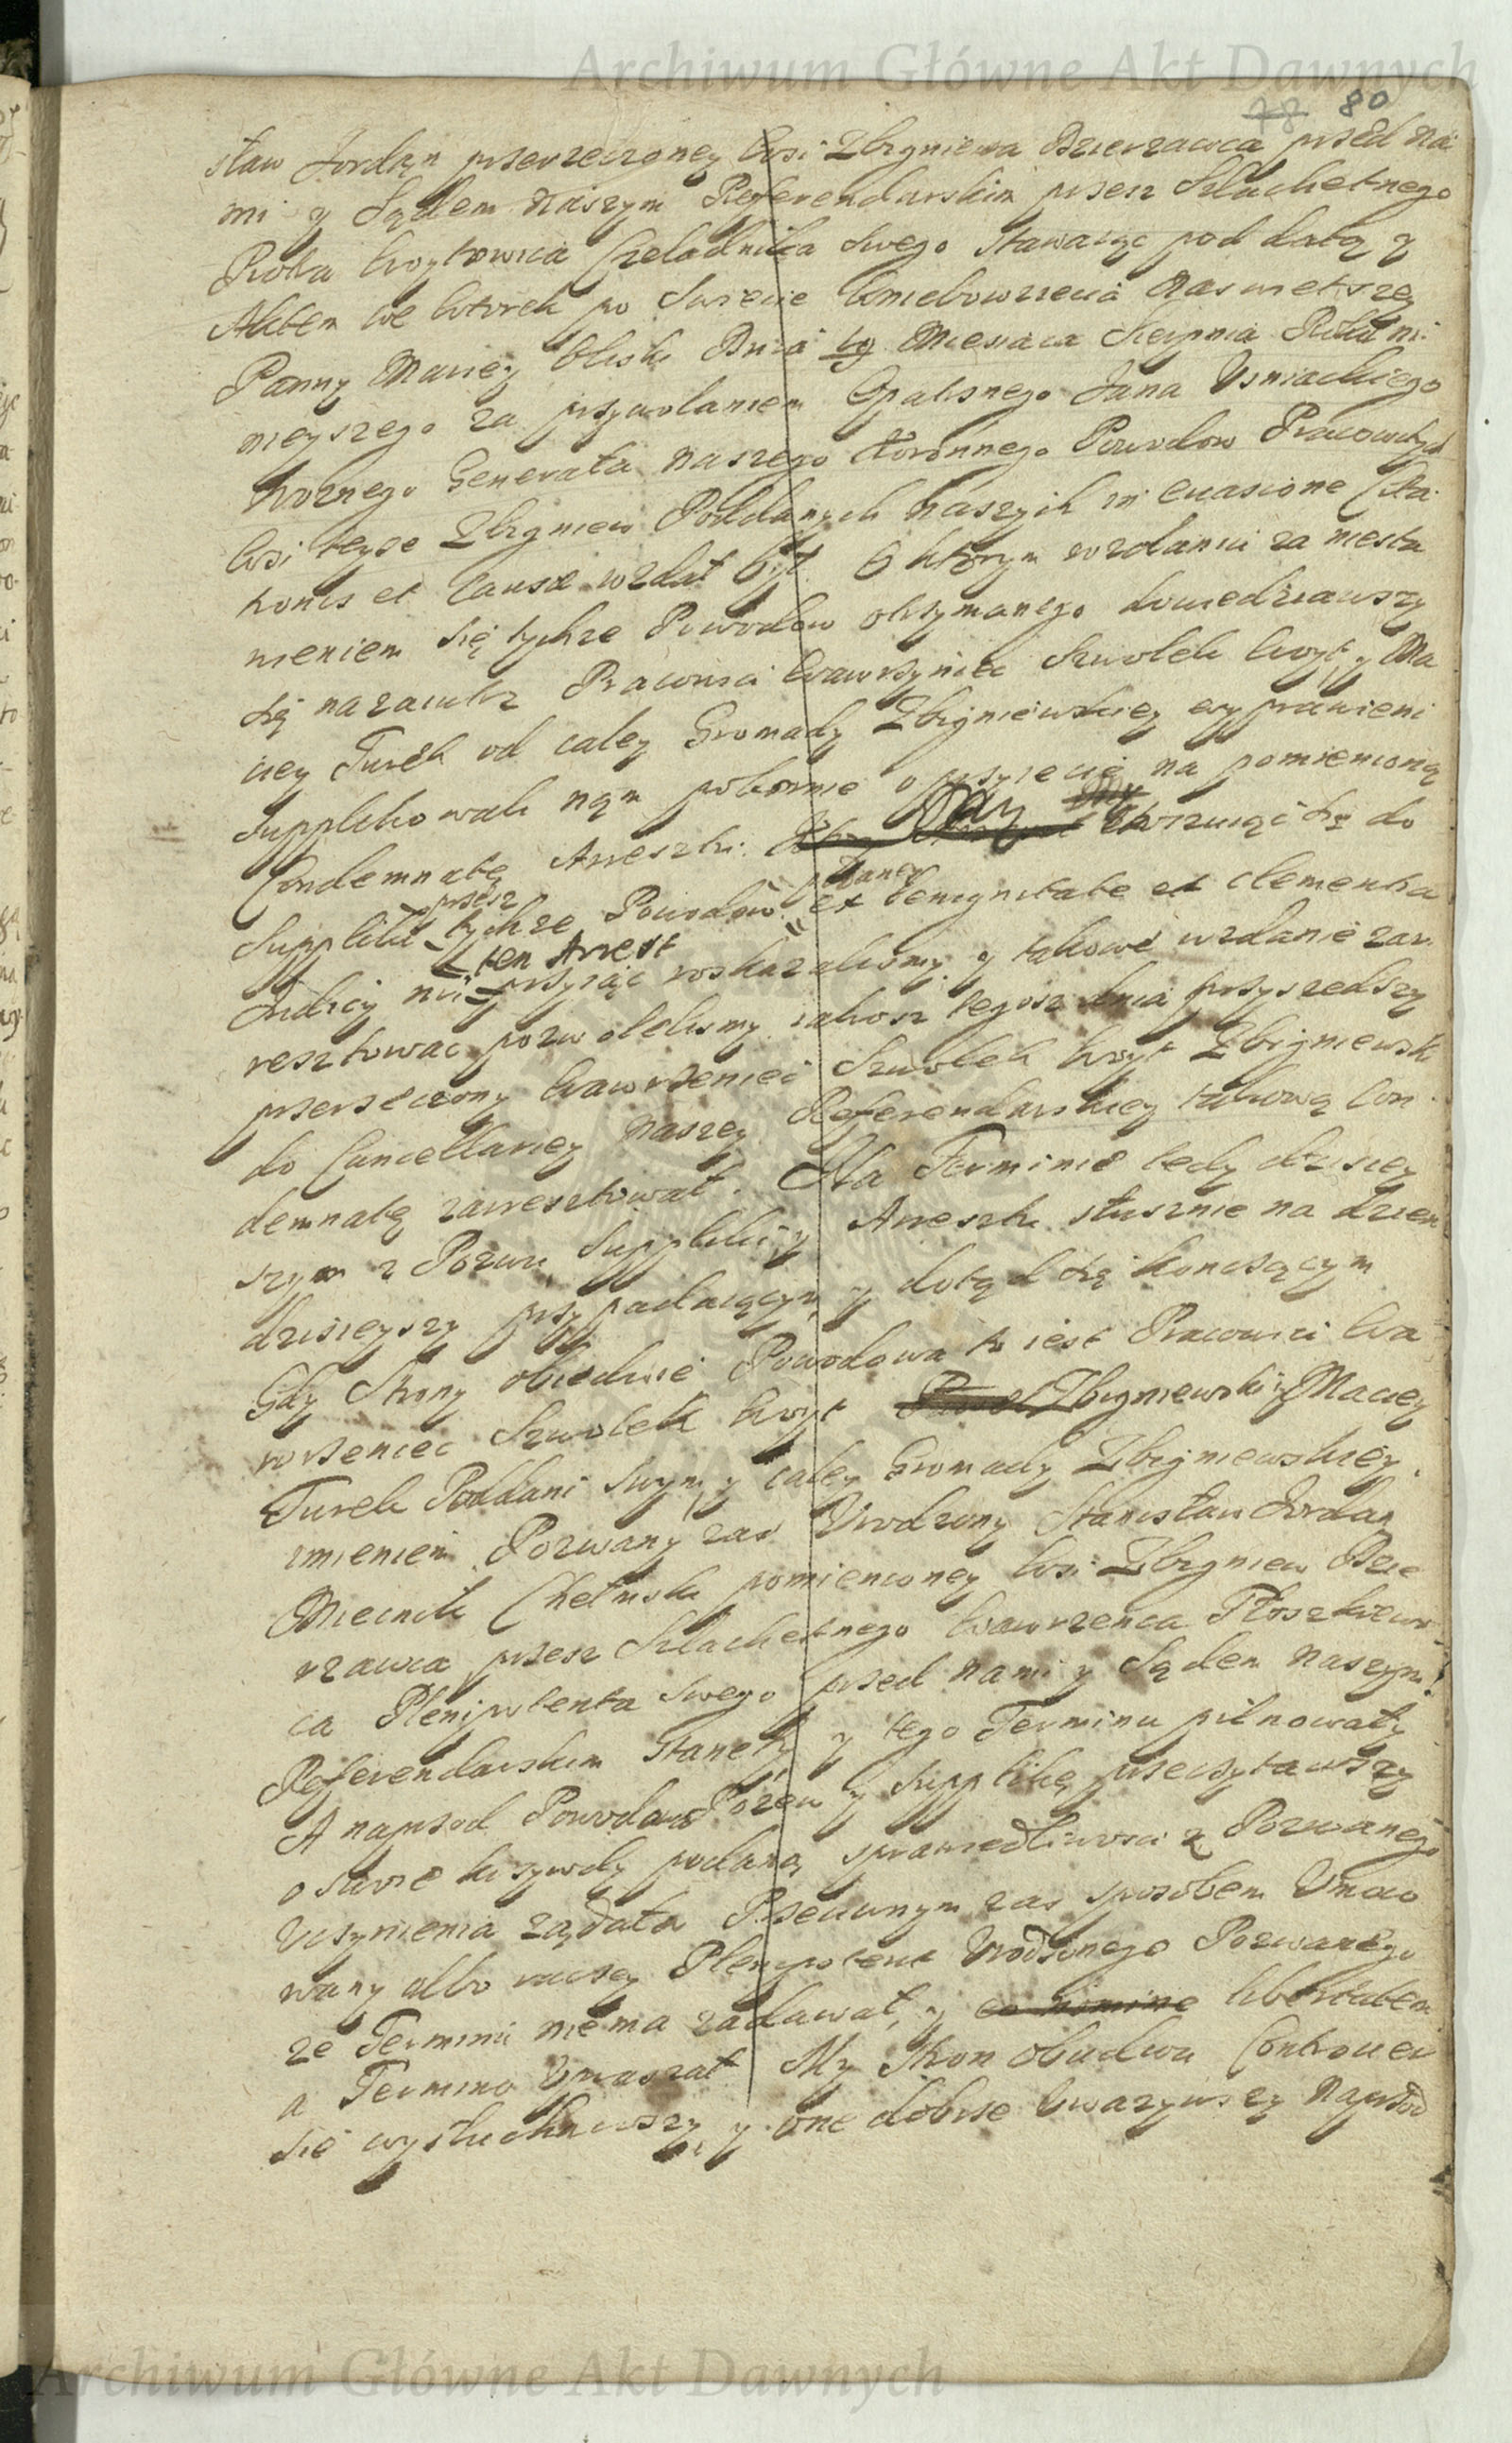 Archiwum Główne Akt Dawnych
78 80
sław Jordan przerzeczoney Wsi Zbigniewa Dzierzawca przed na
mi y Sądem Naszym Referendarskim przesz Szlachetnego
Piotra Woytowica Czeladnika swego stawaiąc pod datą y
Aktem we Wtorek po Swięcie Wniebowzięcia Naswietszey
Panny Mariey blisko Dnia 19 Miesiąca Sierpnia Roku ni
nieyszego za przywołaniem Opatrznego Jana Usniackiego
Woznego Generała Naszego Koronnego Powodow Pracowitych
Wsi teyze Zbigniew Poddanych Naszych in euasione Cita
tionis et Causæ wzdał był. O ktorym wzdaniu za niesta
nieniem się tychze Powodow otrzymanego dowiedziawszy
się nazaiutrz Pracowici Wawrzyniec Szwolek Woyt y Ma
ciey Turek od całey Gromady Zbigniewskiey wyprawieni
Supplikowali nąm pokornie o przyięcie na pomienioną
Condemnatę Arresztu. My skłoniąc się do
Suppliki przesz tychze Powodow podaney ex benignitate et clementia
Judicij n̄ri ten Arrest przyiąc roskazalismy y takowe wzdanie zar
resztowac pozwolilismy iakosz tegosz dnia przyszedszy
przerzeczony Wawrzeniec Szwolek Woyt Zbigniewski
do Cancellariey Naszey Referendarskiey takową Con
demnatę zarresztował. Na Terminie tedy dzisiey
szym z Pozwu, Suppliki y Arresztu słusznie na dzien
dzisieyszy przypadaiącym y dotąd się koncsącym
Gdy Strony obiedwie Powodowa to iest Pracowici Wa
wrzeniec Szwolek Woyt Zbigniewski y Maciey
Turek Poddani swym y całey Gromady Zbigniewskiey
imieniem Pozwany zas Urodzony Stanisław Jordan
Miecnik Chełmski pomienioney Wsi Zbigniew Dzie
rzawca przesz Szlachetnego Wawrzenca Płoszkiewi
ca Plenipotenta swego przed nami y Sądem Naszym
Referendarskim stanęły y tego Terminu pilnowały
A naprsod Powodowa Pozew y Supplikę przeczytawszy
o swoie krzywdy podaną sprawiedliwosci z Pozwanego
Uczynienia ządała Przeciwnym zas sposobem Umoco
wany albo raczey Plenipotent Urodzonego Pozwanego
ze Terminu nie ma zadawał, y eo nomine libertatem
a Termino Wnaszał My Stron obudwu Controuer
sie wysłuchawszy y one dobrze Uwazywszy Naprzod
Archiwum Główne Akt Dawnych